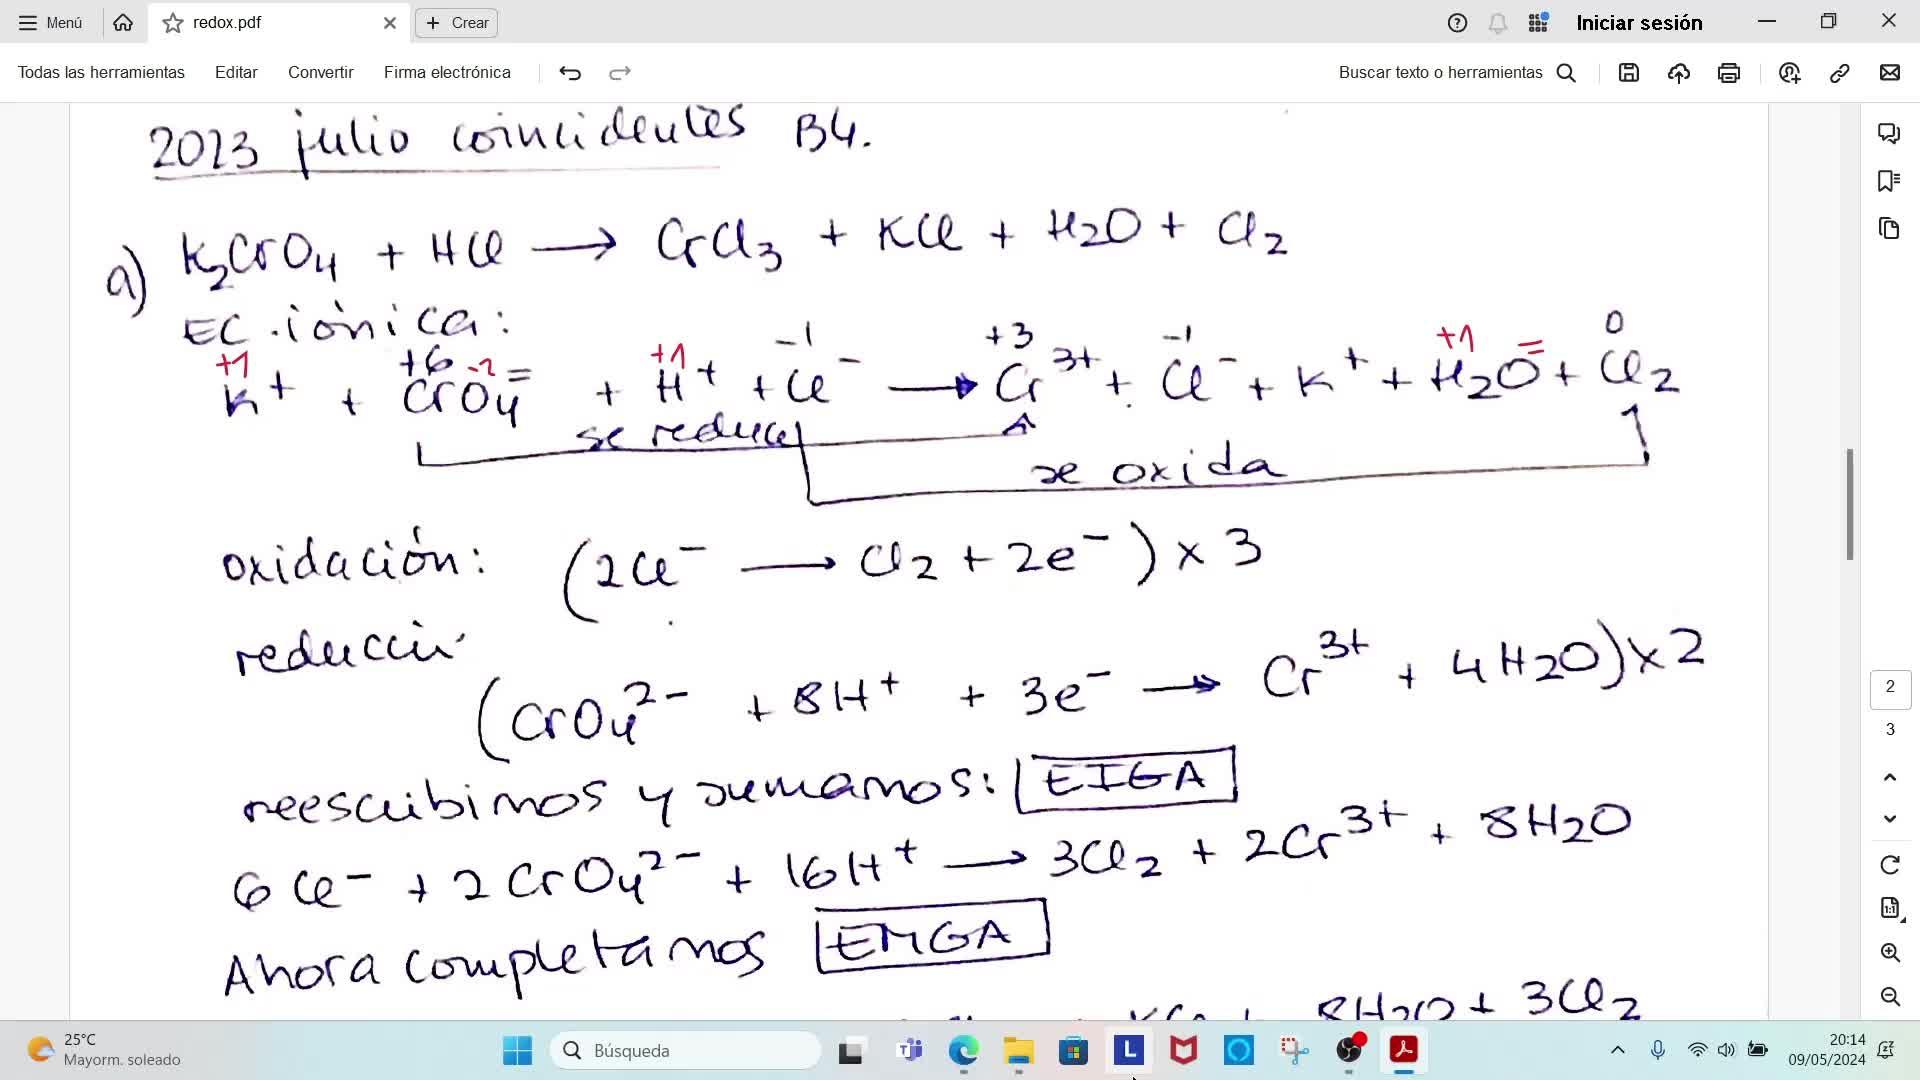 Menú
redox.pdf
Crear
Iniciar sesión
Todas las herramientas Editar Convertir Firma electrónica
Buscar texto o herramientas
2023 julio coincidentes B4.
a) K2CrO4 + HCl → CrCl3 + KCl + H2O + Cl2
EC. iónica:
+1 +6 -2 +1 -1 +3 -1 +1 = 0
K+ + CrO4= + H+ + Cl- → Cr3+ + Cl- + K+ + H2O + Cl2
se reduce
se oxida
oxidación: (2Cl- → Cl2 + 2e-) x 3
reducción
(CrO4 2- + 8H+ + 3e- → Cr3+ + 4H2O) x 2
reescribimos y sumamos: EIGA
6Cl- + 2CrO4 2- + 16H+ → 3Cl2 + 2Cr3+ + 8H2O
Ahora completamos EMGA
8H2O + 3Cl2
2
3
25°C
Mayorm. soleado
Búsqueda
20:14
09/05/2024